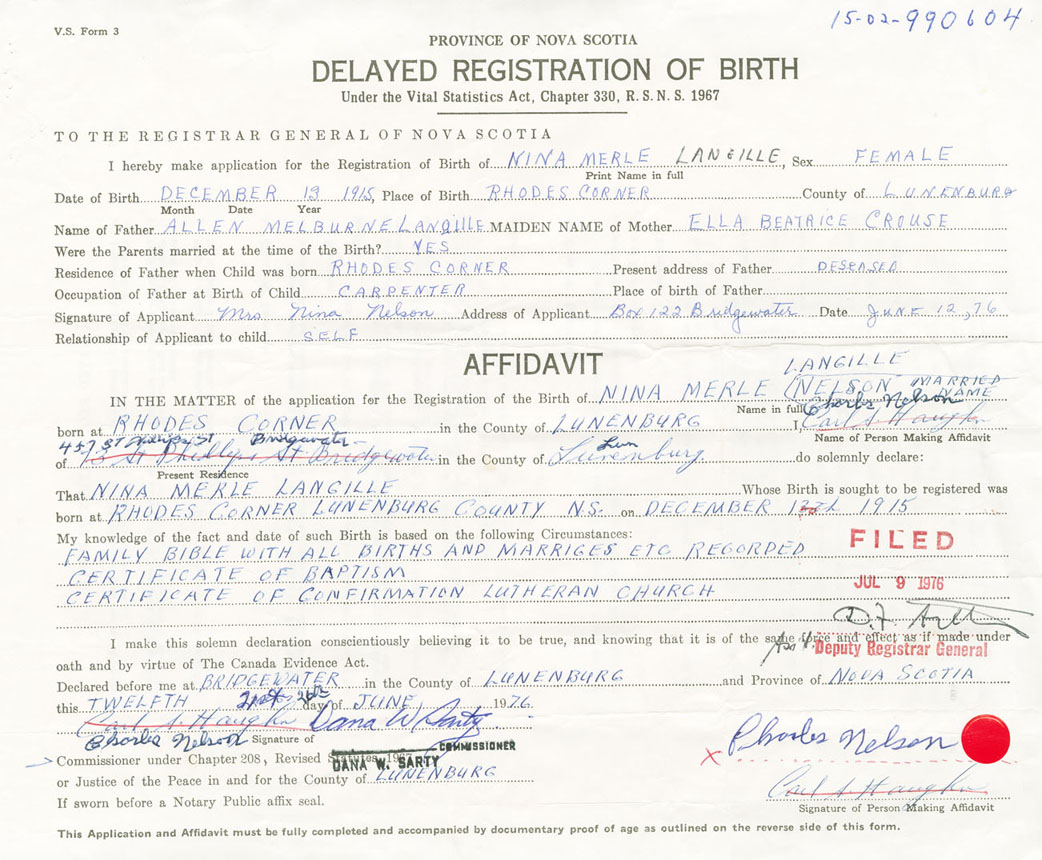 15-02-990604
V.S. Form 3
PROVINCE OF NOVA SCOTIA
DELAYED REGISTRATION OF BIRTH
Under the Vital Statistics Act, Chapter 330, R.S.N.S. 1967
TO THE REGISTRAR GENERAL OF NOVA SCOTIA
I hereby make application for the Registration of Birth of NINA MERLE LANGILLE, Sex FEMALE
Print Name in full
Date of Birth DECEMBER 13 1915, Place of Birth RHODES CORNER County of LUNENBURG
Month Date Year
Name of Father ALLEN MELBURNE LANGILLE MAIDEN NAME of Mother ELLA BEATRICE CROUSE
Were the Parents married at the time of the Birth? YES
Residence of Father when Child was born RHODES CORNER Present address of Father DESEASED
Occupation of Father at Birth of Child CARPENTER Place of birth of Father
Signature of Applicant Mrs Nina Nelson Address of Applicant Box 122 Bridgewater Date JUNE 12, 76
Relationship of Applicant to child SELF
AFFIDAVIT
LANGILLE
IN THE MATTER of the application for the Registration of Birth of NINA MERLE (NELSON MARRIED NAME
Name in full Charles Nelson
born at RHODES CORNER in the County of LUNENBURG I,
Name of Person Making Affidavit
457 St Phillips St Bridgewater Lun
of St Phillips St Bridgewater in the County of Lunenburg do solemnly declare:
Present Residence
That NINA MERLE LANGILLE Whose Birth is sought to be registered was
born at RHODES CORNER LUNENBURG COUNTY N.S. on DECEMBER 13th 1915
My knowledge of the fact and date of such Birth is based on the following Circumstances:
FAMILY BIBLE WITH ALL BIRTHS AND MARRIGES ETC RECORDED
FILED
CERTIFICATE OF BAPTISM
JUL 9 1976
CERTIFICATE OF CONFIRMATION LUTHERAN CHURCH
I make this solemn declaration conscientiously believing it to be true, and knowing that it is of the same force and effect as if made under
Deputy Registrar General
oath and by virtue of The Canada Evidence Act.
Declared before me at BRIDGEWATER in the County of LUNENBURG and Province of NOVA SCOTIA
this TWELFTH 26th day of JUNE, 1976.
Dana W Sarty
Charles Nelson Signature of
COMMISSIONER
Charles Nelson
X
Commissioner under Chapter 208, Revised Statutes 1967
DANA W. SARTY
or Justice of the Peace in and for the County of LUNENBURG
If sworn before a Notary Public affix seal.
Signature of Person Making Affidavit
This Application and Affidavit must be fully completed and accompanied by documentary proof of age as outlined on the reverse side of this form.